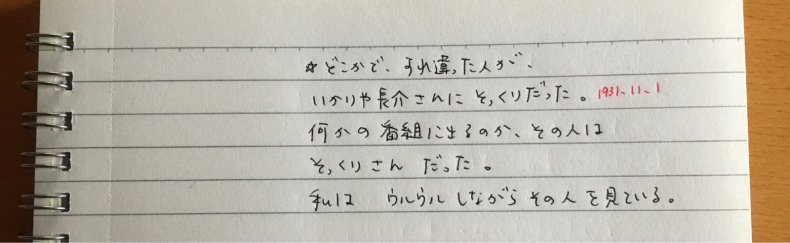 ☆どこかで、すれ違った人が、
いかりや長介さんに そっくりだった。 1931.11.1
何かの番組に出るのか、その人は
そっくりさん だった。
私は ウルウル しながら その人を見ている。